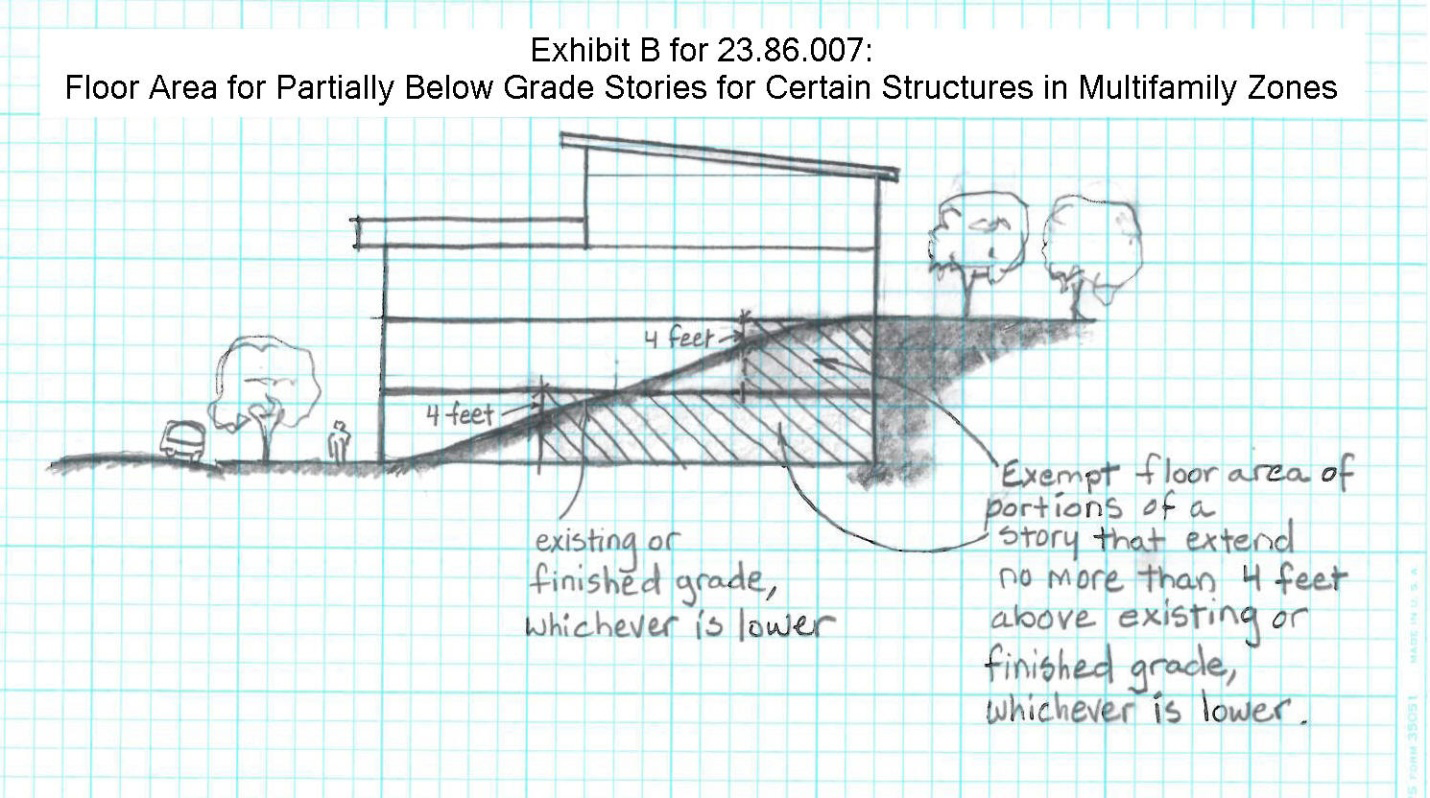 Exhibit B for 23.86.007:
Floor Area for Partially Below Grade Stories for Certain Structures in Multifamily Zones
4 feet
4 feet
existing or
finished grade,
whichever is lower
Exempt floor area of
portions of a
story that extend
no more than 4 feet
above existing or
finished grade,
whichever is lower.
MADE IN U.S.A.
FORM 35051